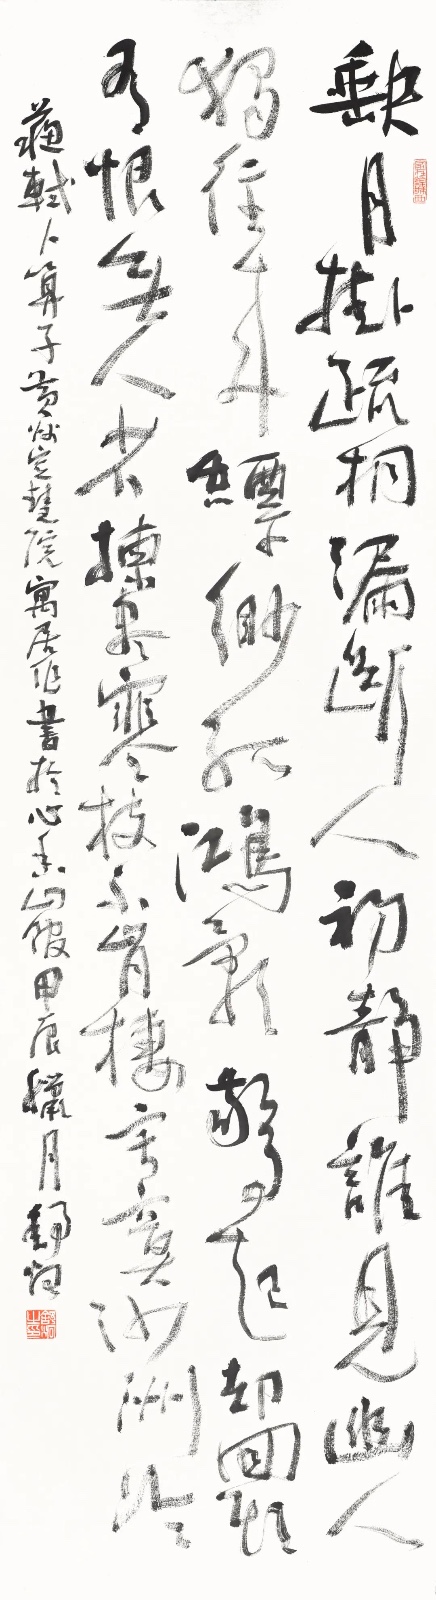 缺月掛疏桐漏斷人初靜誰見幽人
獨往來縹緲孤鴻影驚起却回頭
有恨無人省揀盡寒枝不肯棲寂寞沙洲冷
蘇軾卜算子黃州定慧院寓居作書於心山館甲辰臘月靜